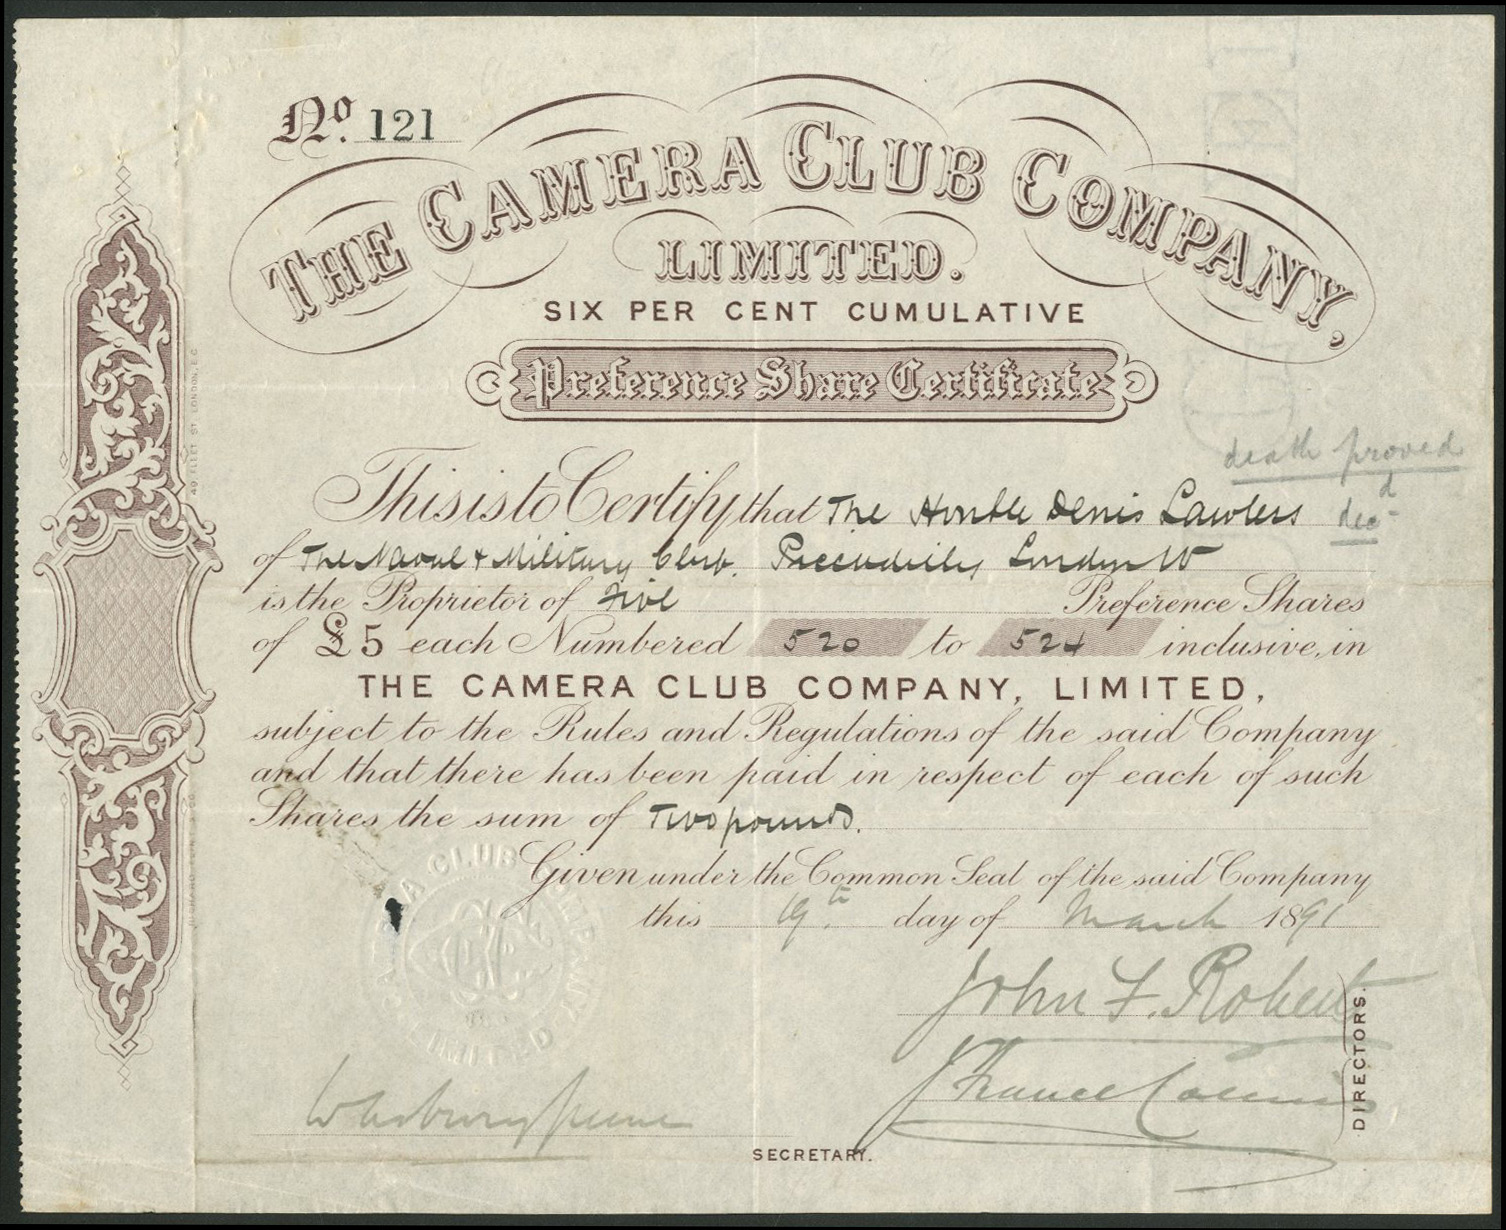 No. 121
THE CAMERA CLUB COMPANY,
LIMITED.
SIX PER CENT CUMULATIVE
Preference Share Certificate
death proved
This is to Certify that The Honble Denis Lawless decd
of The Naval & Military Club. Piccadilly London W
is the Proprietor of Five Preference Shares
of £5 each Numbered 520 to 524 inclusive, in
THE CAMERA CLUB COMPANY, LIMITED,
subject to the Rules and Regulations of the said Company
and that there has been paid in respect of each of such
Shares the sum of Two pounds.
Given under the Common Seal of the said Company
this 19th. day of March 1891
John F. Roberts
DIRECTORS.
SECRETARY.
40 FLEET ST LONDON, E.C
CAMERA CLUB COMPANY LIMITED